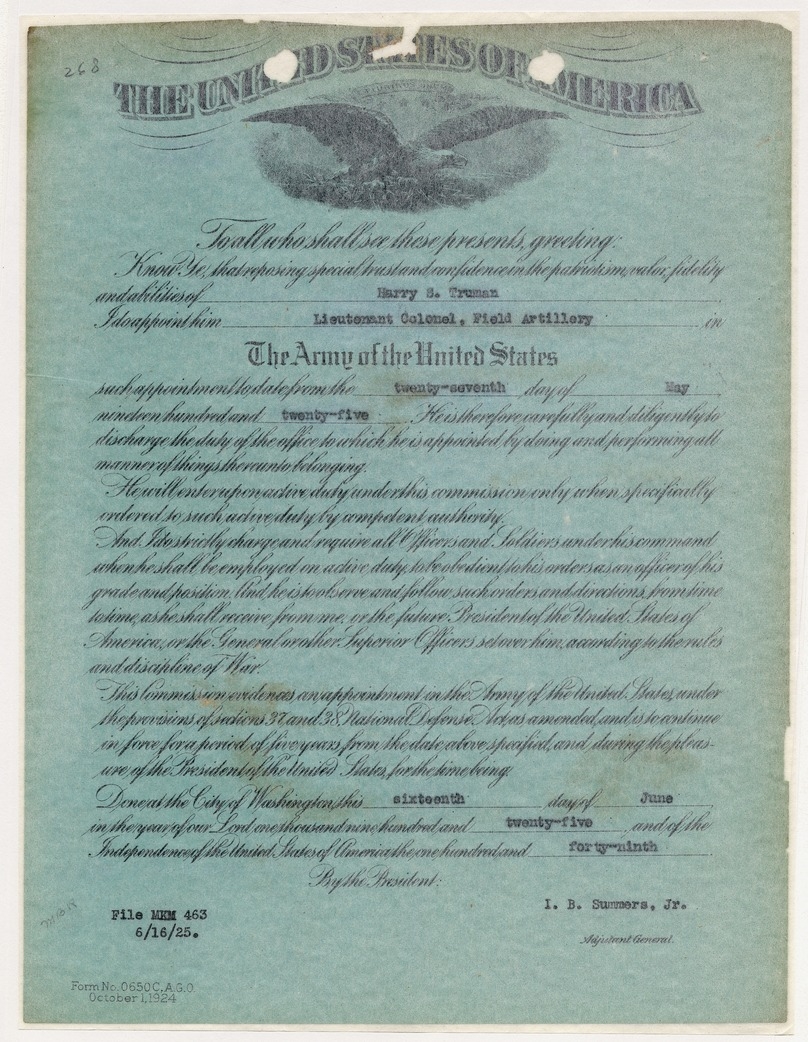 268
THE UNITED STATES OF AMERICA
To all who shall see these presents, greeting:
Know Ye, that reposing special trust and confidence in the patriotism, valor, fidelity
and abilities of Harry S. Truman
I do appoint him Lieutenant Colonel, Field Artillery in
The Army of the United States
such appointment to date from the twenty-seventh day of May
nineteen hundred and twenty-five . He is therefore carefully and diligently to
discharge the duty of the office to which he is appointed by doing and performing all
manner of things thereunto belonging.
He will enter upon active duty under this commission only when specifically
ordered to such active duty by competent authority.
And I do strictly charge and require all Officers and Soldiers under his command
when he shall be employed on active duty, to be obedient to his orders as an officer of his
grade and position. And he is to observe and follow such orders and directions, from time
to time, as he shall receive from me, or the future President of the United States of
America, or the General or other Superior Officers set over him, according to the rules
and discipline of War.
This Commission evidences an appointment in the Army of the United States, under
the provisions of sections 37 and 38, National Defense Act, as amended, and is to continue
in force for a period of five years from the date above specified, and during the pleas-
ure of the President of the United States, for the time being.
Done at the City of Washington, this sixteenth day of June
in the year of our Lord one thousand nine hundred and twenty-five , and of the
Independence of the United States of America the one hundred and forty-ninth .
By the President:
I. B. Summers, Jr.
Adjutant General.
File MKM 463
6/16/25.
Form No. 0650 C, A.G.O.
October 1, 1924